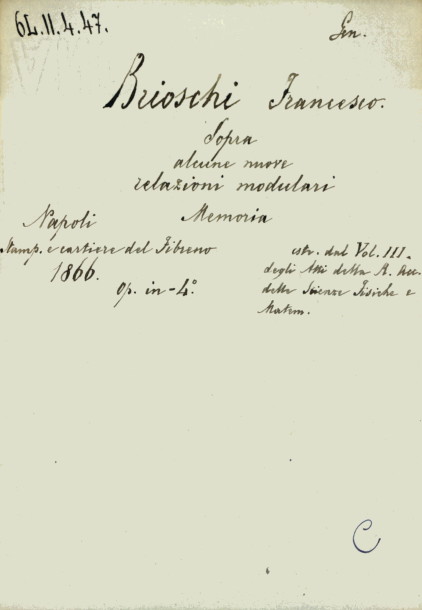 6L.II.4.47.
Gen.
Brioschi Francesco.
Sopra
alcune nuove
relazioni modulari
Memoria
Napoli
Stamp. e cartiere del Fibreno
1866.
Op. in-4º
estr. dal Vol. III.
degli Atti della R. Acc.
delle Scienze Fisiche e
Matem.
C